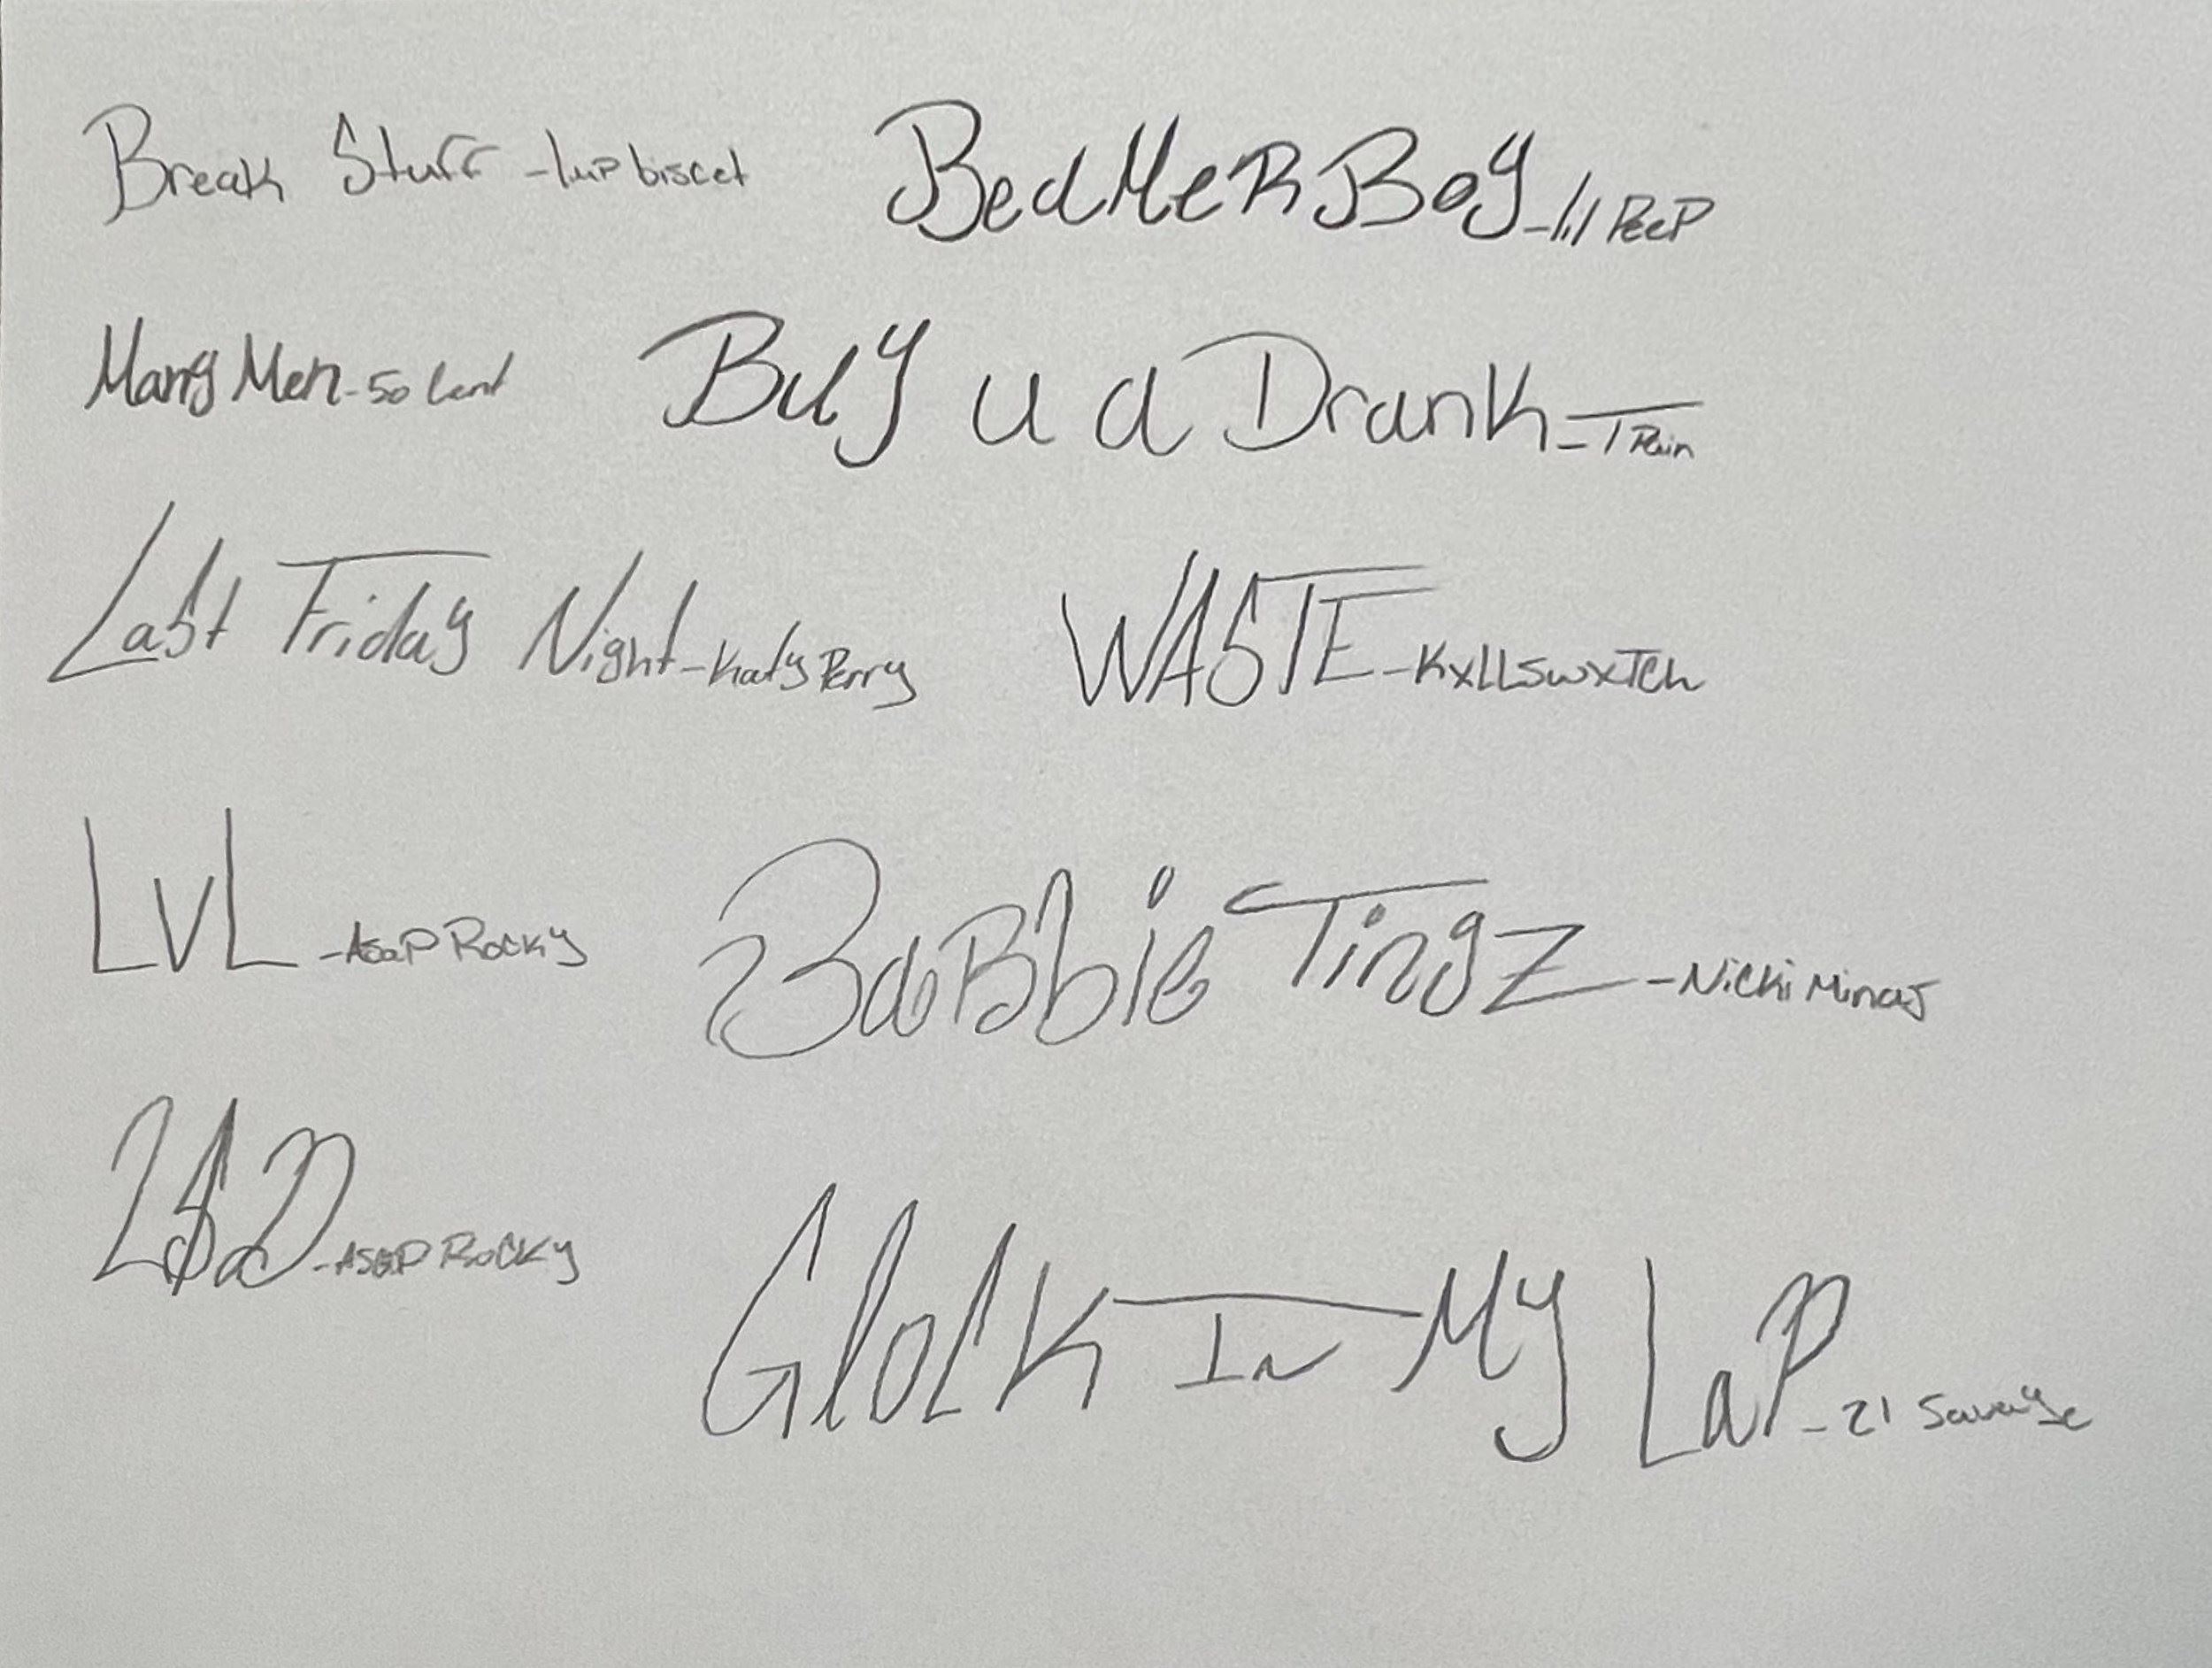 Break Stuff - lmp biscet BedMerBoy - lil Peep
Many Men - 50 Cent Buy u a Drank - T Pain
Last Friday Night - Katy Perry WASTE - KxLLSwxTch
LVL - Asap Rocky BaBbie Tingz - Nicki Minaj
L$D - ASAP Rocky Glock In My LaP - 21 Savage